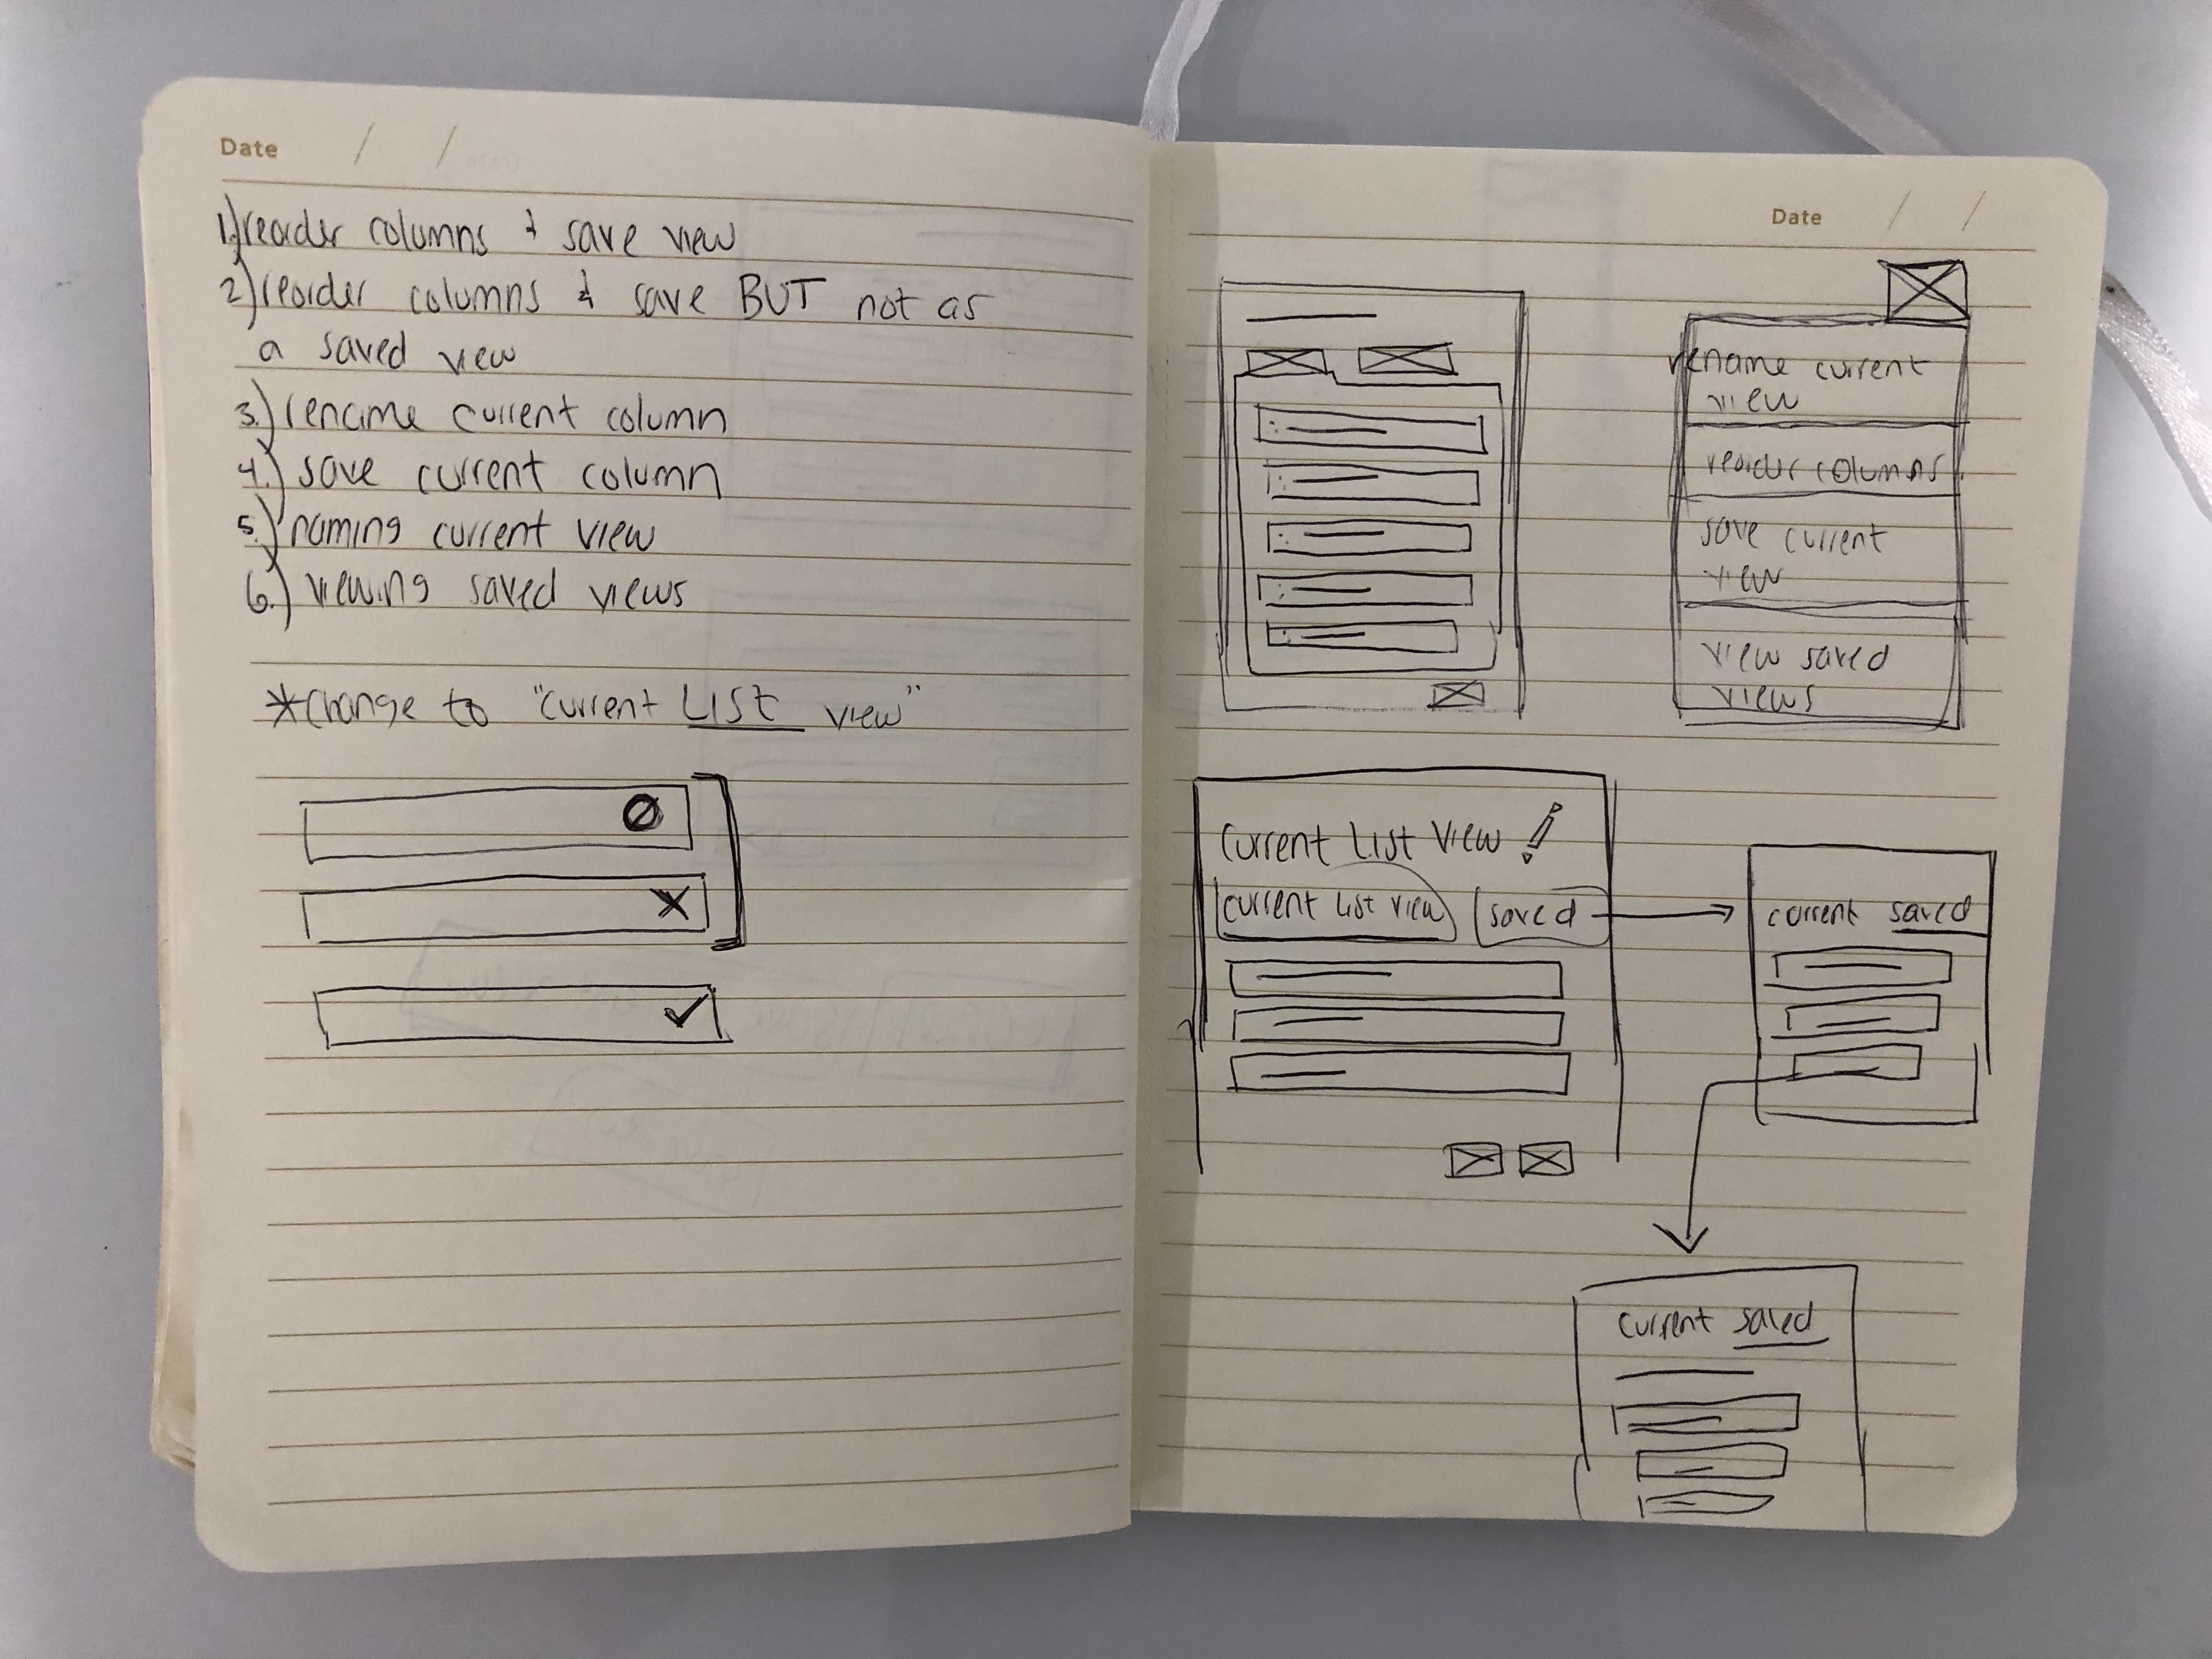 Date / /
1.) reorder columns & save view
2.) reorder columns & save BUT not as
a saved view
3.) rename current column
4.) save current column
5.) naming current view
6.) viewing saved views
*change to "current LIST view"
Date / /
rename current
view
reorder columns
save current
view
view saved
views
Current List View
current list view saved
current saved
current saved